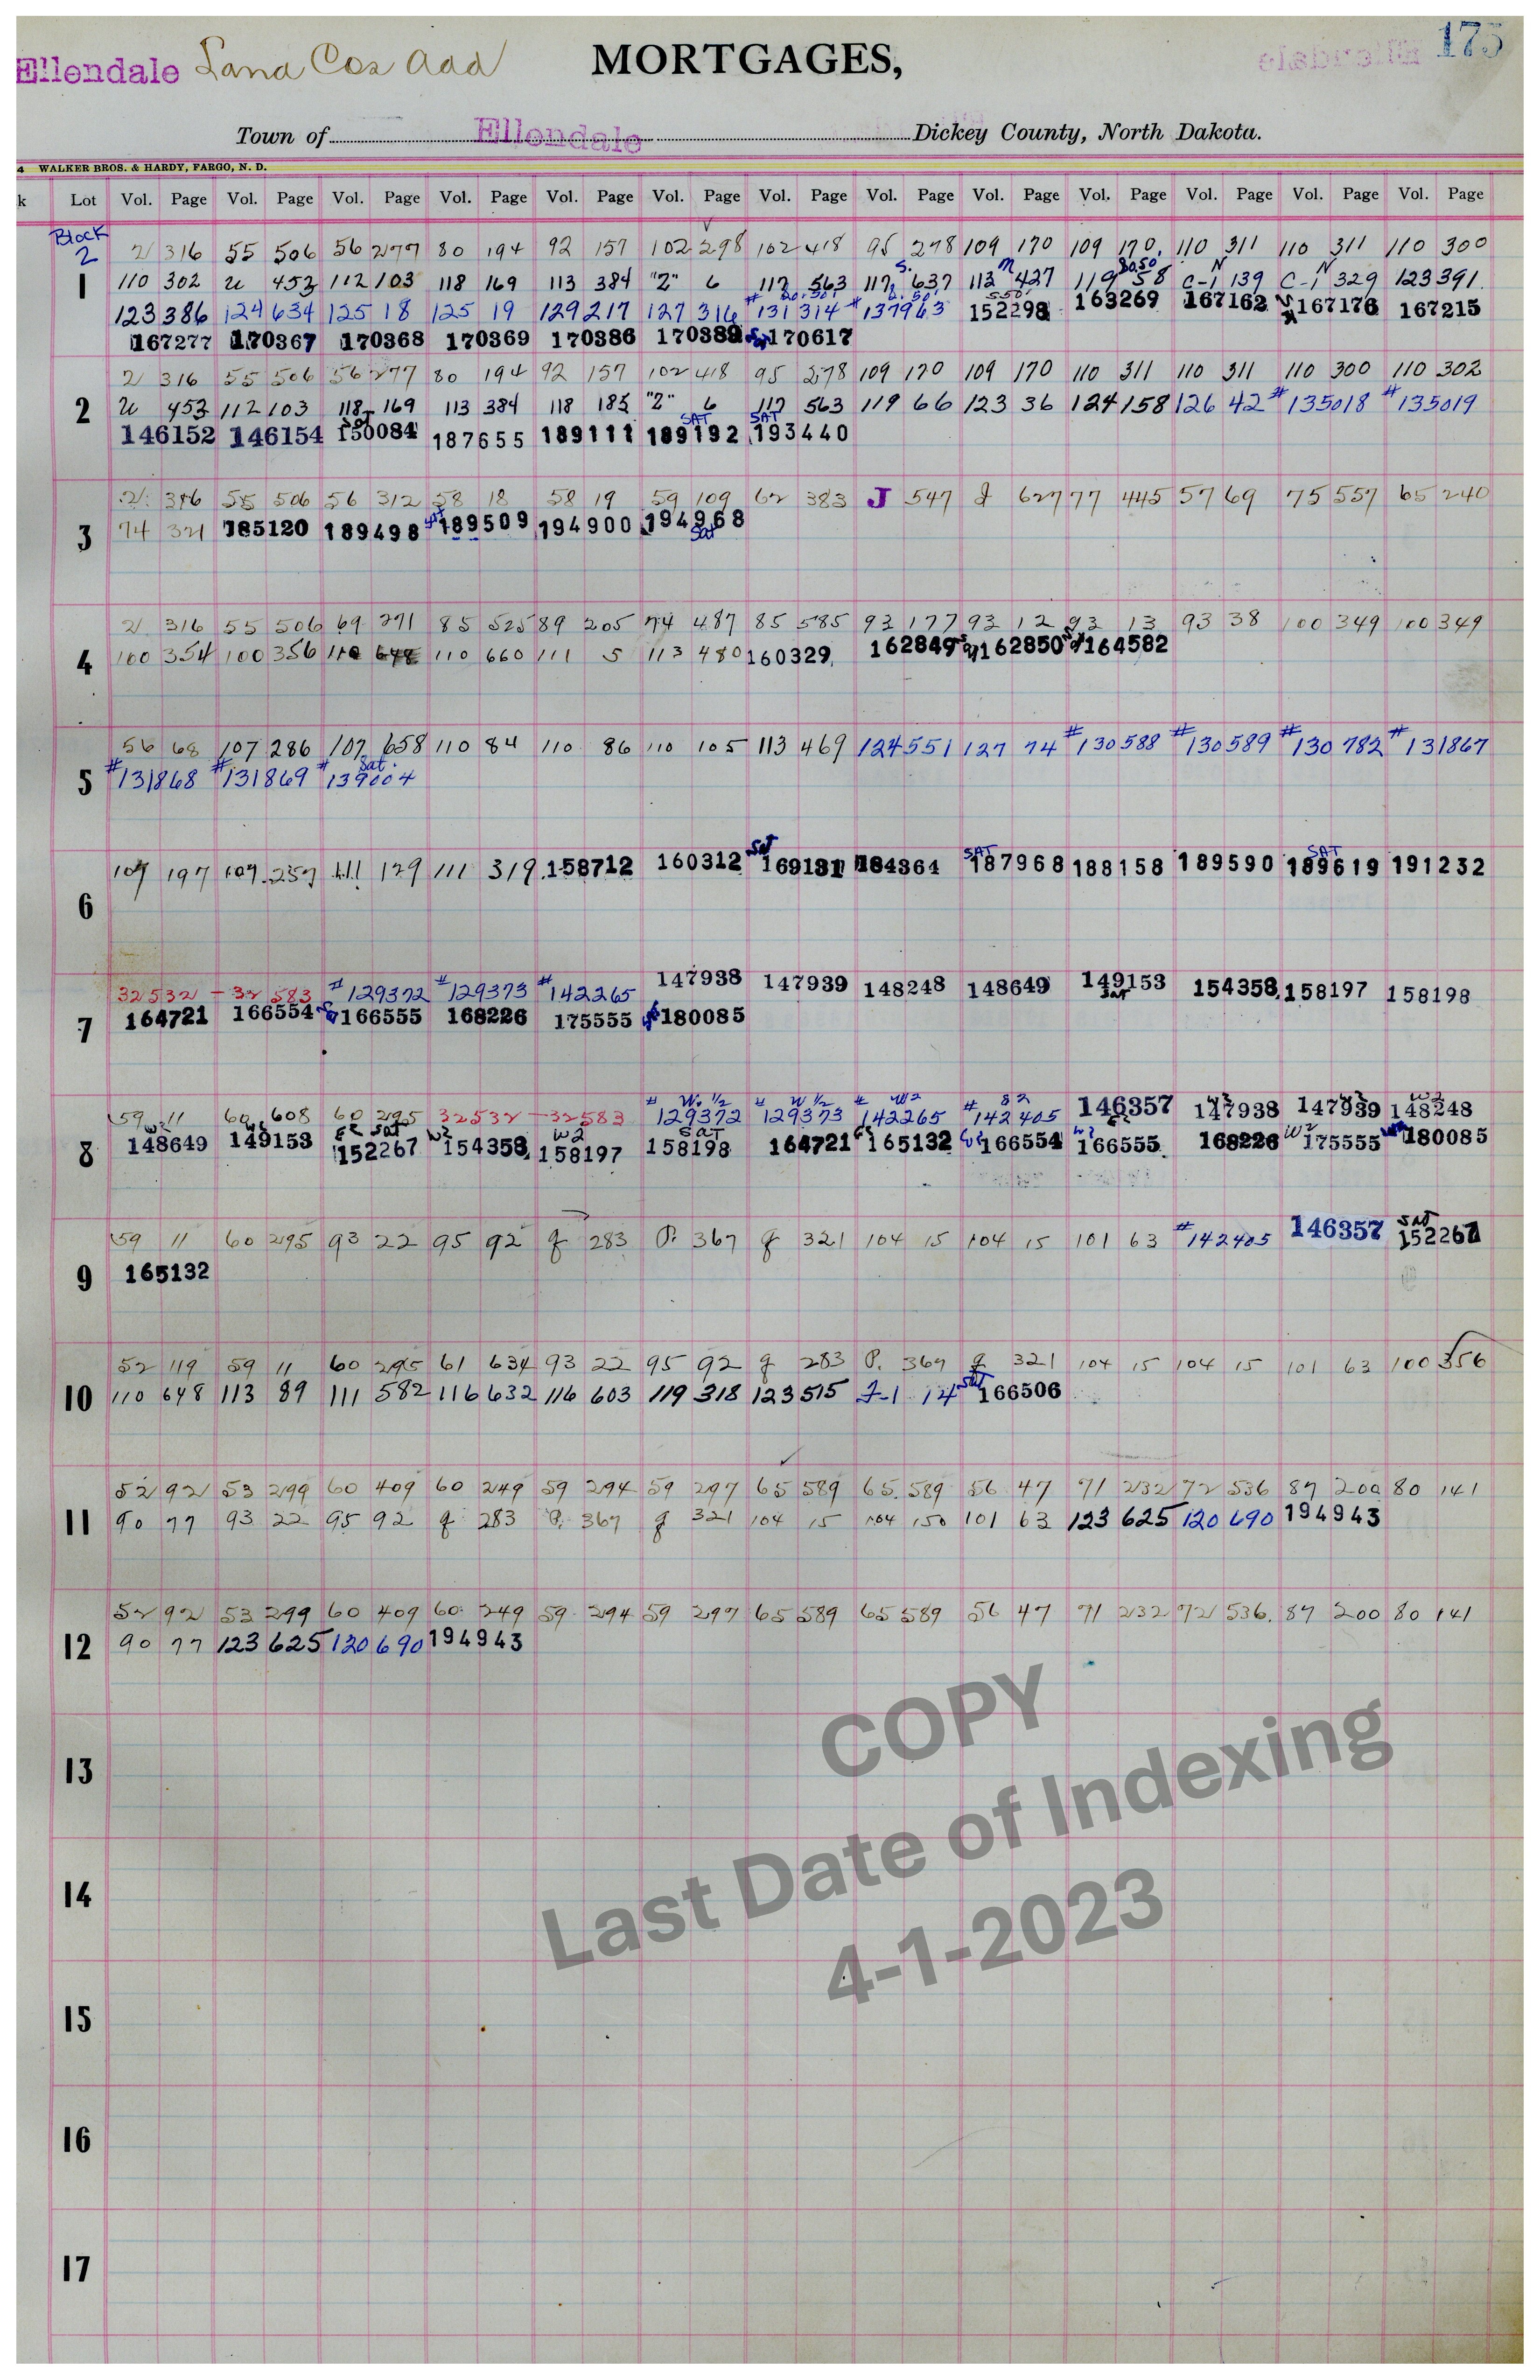 175
Ellendale Land Cos Add MORTGAGES,
Town of Ellendale Dickey County, North Dakota.
4 WALKER BROS. & HARDY, FARGO, N. D.
k Lot Vol. Page Vol. Page Vol. Page Vol. Page Vol. Page Vol. Page Vol. Page Vol. Page Vol. Page Vol. Page Vol. Page Vol. Page Vol. Page
Block 2
21 316 55 506 56 277 80 194 92 157 102 298 102 418 95 278 109 170 109 170 110 311 110 311 110 300
1 110 302 u 453 112 103 118 169 113 384 "Z" 6 117 563 117 637 113 427 119 58 C-1 139 C-1 329 123 391
123 386 124 634 125 18 125 19 129 217 127 316 #131314 #137963 152298 163269 167162 167176 167215
167277 170367 170368 170369 170386 170389 170617
21 316 55 506 56 277 80 194 92 157 102 418 95 278 109 170 109 170 110 311 110 311 110 300 110 302
2 u 453 112 103 118 169 113 384 118 185 "Z" 6 117 563 119 66 123 36 124 158 126 42 #135018 #135019
146152 146154 150084 187655 189111 SAT 189192 SAT 193440
21 316 55 506 56 312 58 18 58 19 59 109 62 383 J 547 J 627 77 445 57 69 75 557 65 240
3 74 321 185120 189498 189509 194900 194968 Sat
21 316 55 506 69 271 85 525 89 205 74 487 85 585 93 177 93 12 93 13 93 38 100 349 100 349
4 100 354 100 356 110 648 110 660 111 5 113 480 160329 162849 162850 164582
56 68 107 286 107 658 110 84 110 86 110 105 113 469 124 551 127 74 #130588 #130589 #130782 #131867
5 #131868 #131869 #139004 Sat.
109 197 109 257 111 129 111 319 158712 160312 Sat 169131 184364 SAT 187968 188158 189590 SAT 189619 191232
6
32532 - 32583 #129372 #129373 #142265 147938 147939 148248 148649 149153 SAT 154358 158197 158198
7 164721 166554 166555 168226 175555 180085
59 11 60 608 60 295 32532 - 32583 # W. 1/2 129372 # W 1/2 129373 # W2 142265 # E2 142405 146357 W2 147938 W2 147939 W2 148248
8 W2 148649 W2 149153 E2 SAT 152267 W2 154358 W2 158197 SAT 158198 164721 165132 166554 166555 168226 W2 175555 180085
59 11 60 295 93 22 95 92 g 283 P. 367 g 321 104 15 104 15 101 63 #142405 146357 SAT 152267
9 165132
52 119 59 11 60 295 61 634 93 22 95 92 g 283 P. 367 g 321 104 15 104 15 101 63 100 356
10 110 648 113 89 111 582 116 632 116 603 119 318 123 515 F-1 14 Sat 166506
52 92 53 299 60 409 60 249 59 294 59 297 65 589 65 589 56 47 71 232 72 536 87 200 80 141
11 90 77 93 22 95 92 g 283 P. 367 g 321 104 15 104 150 101 63 123 625 120 690 194943
52 92 53 299 60 409 60 249 59 294 59 297 65 589 65 589 56 47 71 232 72 536 87 200 80 141
12 90 77 123 625 120 690 194943
13
14
15
16
17
COPY
Last Date of Indexing
4-1-2023